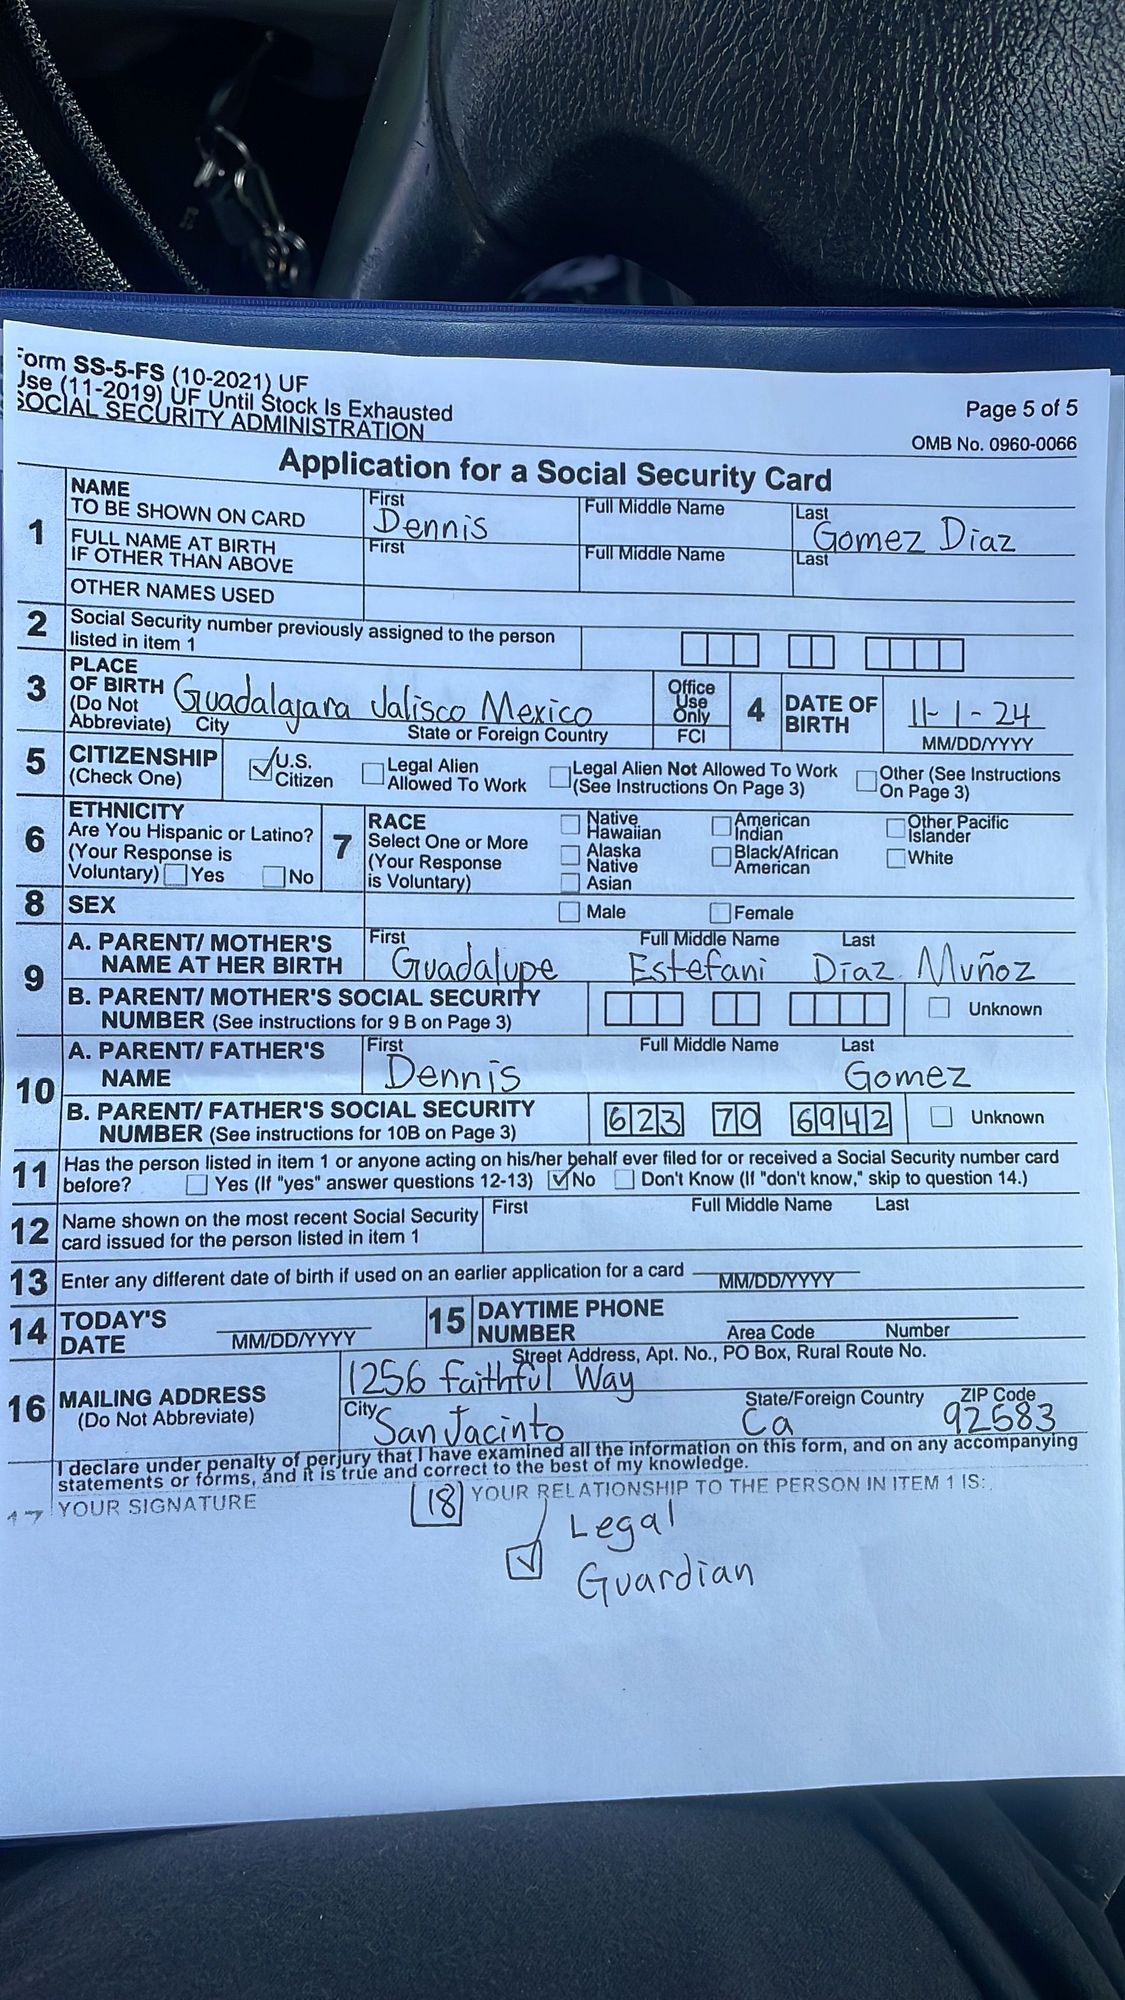 Form SS-5-FS (10-2021) UF
Use (11-2019) UF Until Stock Is Exhausted
SOCIAL SECURITY ADMINISTRATION
Page 5 of 5
OMB No. 0960-0066
Application for a Social Security Card
1 NAME TO BE SHOWN ON CARD First Dennis Full Middle Name Last Gomez Diaz
FULL NAME AT BIRTH IF OTHER THAN ABOVE First Full Middle Name Last
OTHER NAMES USED
2 Social Security number previously assigned to the person listed in item 1
3 PLACE OF BIRTH (Do Not Abbreviate) Guadalajara Jalisco Mexico City State or Foreign Country Office Use Only FCI 4 DATE OF BIRTH 11-1-24 MM/DD/YYYY
5 CITIZENSHIP (Check One) U.S. Citizen Legal Alien Allowed To Work Legal Alien Not Allowed To Work (See Instructions On Page 3) Other (See Instructions On Page 3)
6 ETHNICITY Are You Hispanic or Latino? (Your Response is Voluntary) Yes No
7 RACE Select One or More (Your Response is Voluntary) Native Hawaiian Alaska Native Asian American Indian Black/African American Other Pacific Islander White
8 SEX Male Female
9 A. PARENT/ MOTHER'S NAME AT HER BIRTH First Guadalupe Full Middle Name Estefani Last Diaz Muñoz
B. PARENT/ MOTHER'S SOCIAL SECURITY NUMBER (See instructions for 9 B on Page 3) Unknown
10 A. PARENT/ FATHER'S NAME First Dennis Full Middle Name Last Gomez
B. PARENT/ FATHER'S SOCIAL SECURITY NUMBER (See instructions for 10B on Page 3) 623 70 6942 Unknown
11 Has the person listed in item 1 or anyone acting on his/her behalf ever filed for or received a Social Security number card
before? Yes (If "yes" answer questions 12-13) No Don't Know (If "don't know," skip to question 14.)
12 Name shown on the most recent Social Security card issued for the person listed in item 1 First Full Middle Name Last
13 Enter any different date of birth if used on an earlier application for a card MM/DD/YYYY
14 TODAY'S DATE MM/DD/YYYY 15 DAYTIME PHONE NUMBER Area Code Number
16 MAILING ADDRESS (Do Not Abbreviate) Street Address, Apt. No., PO Box, Rural Route No.
1256 Faithful Way
City San Jacinto State/Foreign Country Ca ZIP Code 92583
I declare under penalty of perjury that I have examined all the information on this form, and on any accompanying
statements or forms, and it is true and correct to the best of my knowledge.
17 YOUR SIGNATURE 18 YOUR RELATIONSHIP TO THE PERSON IN ITEM 1 IS:
Legal
Guardian